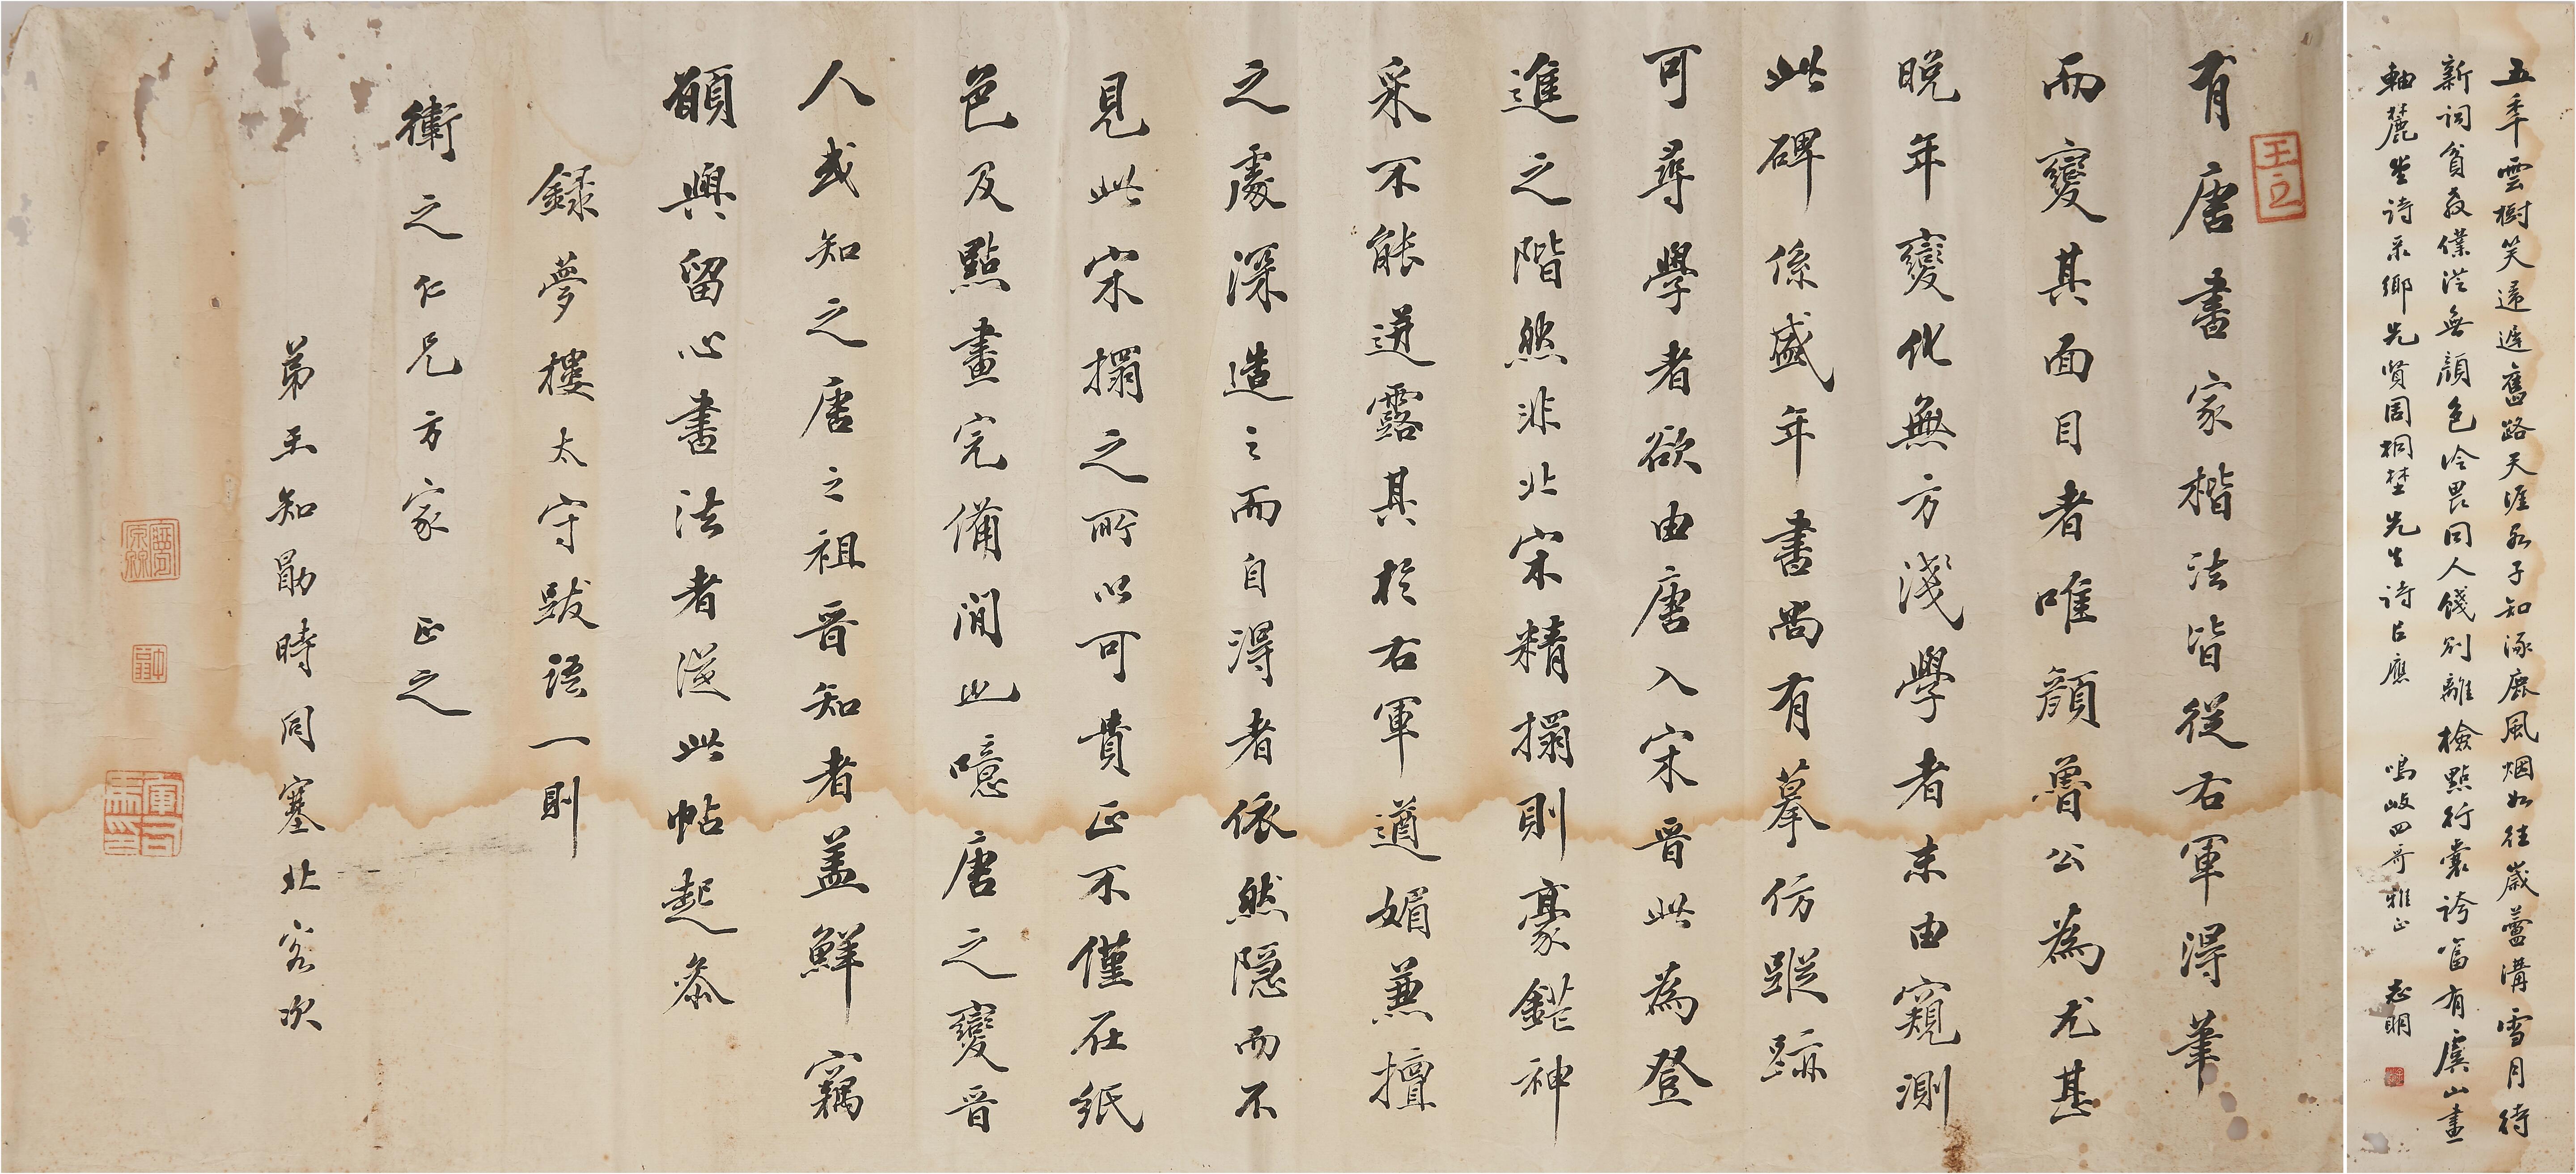 有唐書家楷法皆從右軍得筆
而變其面目者唯顏魯公為尤甚
晚年變化無方淺學者未由窺測
此碑係盛年書尚有摹仿蹤跡
可尋學者欲由唐入宋晉此為登
進之階然非北宋精搨則豪鋩神
采不能迸露其於右軍遒媚兼擅
之處深造之而自得者依然隱而不
見此宋搨之所以可貴正不僅在紙
色及點畫完備間也噫唐之變晉
人或知之唐之祖晉知者盖鮮竊
願與留心書法者從此帖起參
錄夢樓太守跋語一則
衛之仁兄方家 正之
弟王知勛時同塞北客次
王立
五年雲樹笑遲遲舊路天涯君子知涿鹿風烟如往歲蘆溝雪月待
新詞貧教僕從無顏色冷畏同人餞別離檢點行囊誇富有虞山畫
軸麓臺詩系鄉先賢周桐埜先生詩旨應 鳴岐四哥雅正 志明